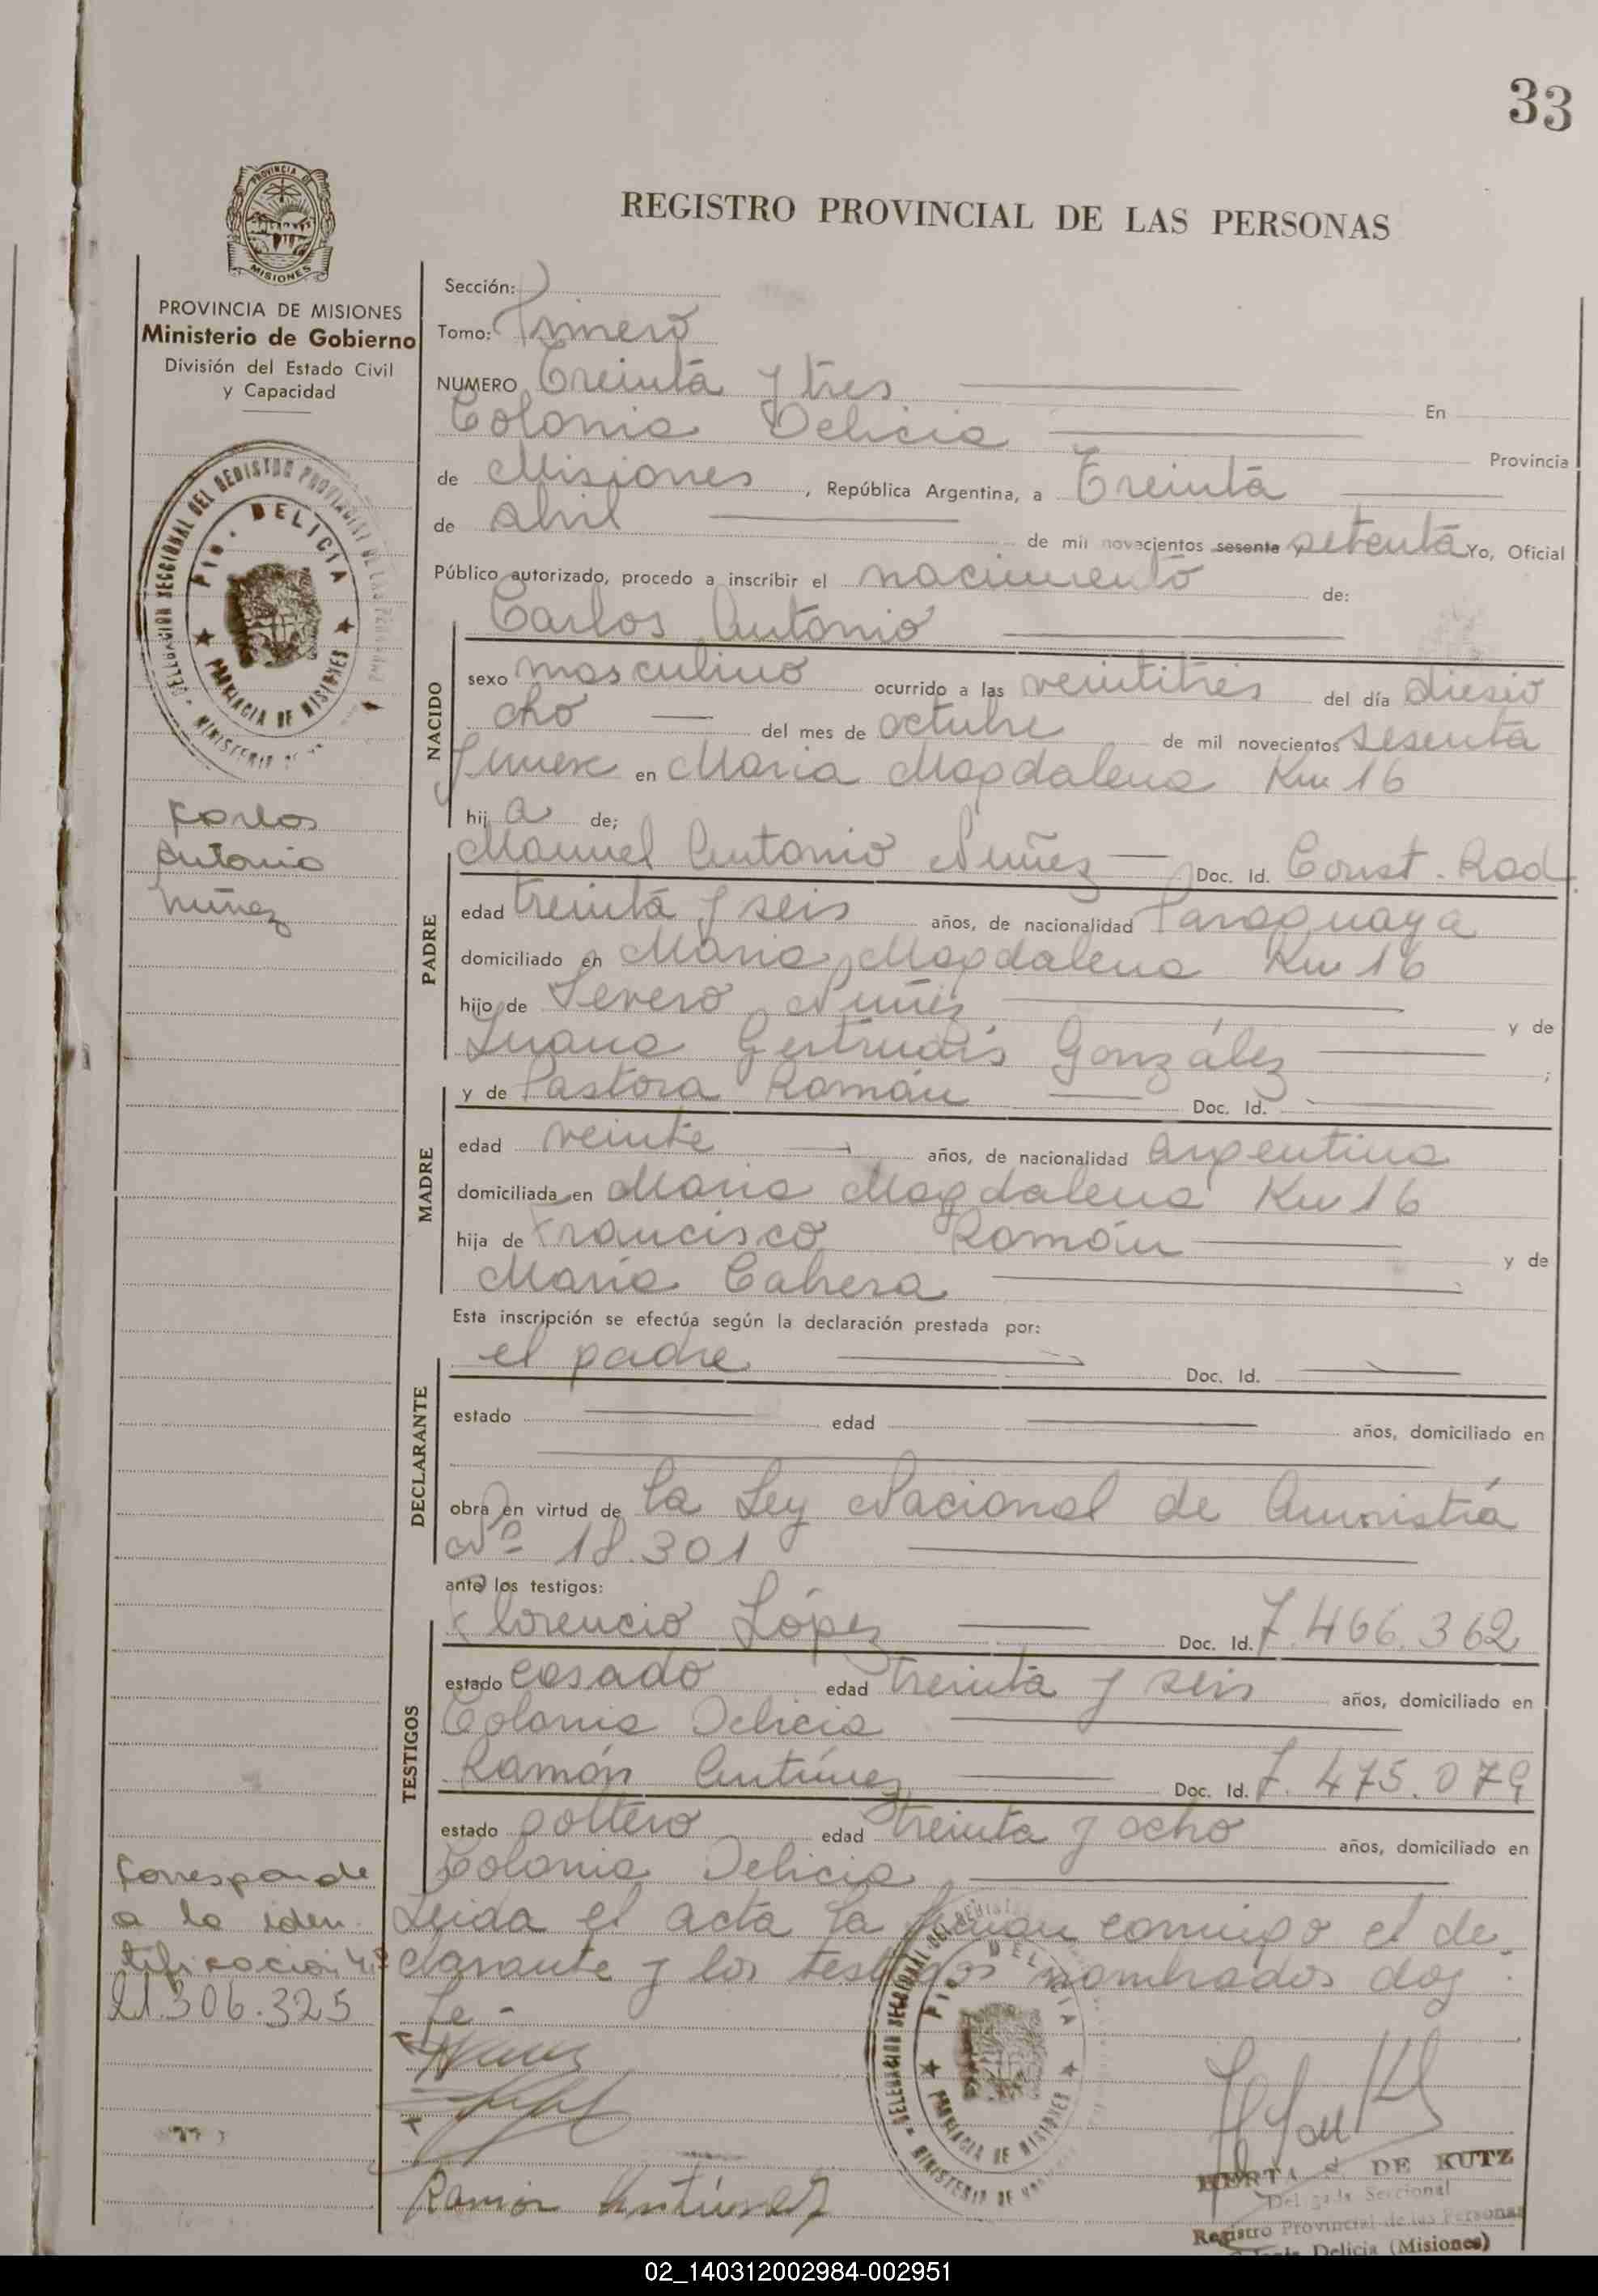 33
REGISTRO PROVINCIAL DE LAS PERSONAS
PROVINCIA DE MISIONES
PROVINCIA DE MISIONES
Ministerio de Gobierno
División del Estado Civil
y Capacidad
DELEGACION SECCIONAL DEL REGISTRO PROVINCIAL DE LAS PERSONAS
DELICIA
PROVINCIA DE MISIONES
Carlos
Antonio
Núñez
Corresponde
a la iden
tificación Nº
21.306.325
Sección:
Tomo: Primero
NUMERO Treinta y tres En
Colonia Delicia Provincia
de Misiones, República Argentina, a Treinta
de abril de mil novecientos sesenta y setenta Yo, Oficial
Público autorizado, procedo a inscribir el nacimiento de:
Carlos Antonio
NACIDO
sexo masculino ocurrido a las veintitres del día diesio
cho del mes de octubre de mil novecientos sesenta
y nueve en Maria Magdalena Km 16
hij a de;
PADRE
Manuel Antonio Nuñez Doc. Id. Const. Rad.
edad treinta y seis años, de nacionalidad Paraguaya
domiciliado en Maria Magdalena Km 16
hijo de Severo Nuñez y de
Juana Gertrudis González ;
MADRE
y de Pastora Román Doc. Id.
edad veinte años, de nacionalidad argentina
domiciliada en Maria Magdalena Km 16
hija de Francisco Román y de
María Cabrera
Esta inscripción se efectúa según la declaración prestada por:
DECLARANTE
el padre Doc. Id.
estado edad años, domiciliado en
obra en virtud de la Ley Nacional de Amnistía
Nº 18.301
ante los testigos:
TESTIGOS
Florencio López Doc. Id. 7.466.362
estado casado edad treinta y seis años, domiciliado en
Colonia Delicia
Ramón Antúnez Doc. Id. 7.475.079
estado soltero edad treinta y ocho años, domiciliado en
Colonia Delicia
Leida el acta la firman conmigo el de
clarante y los testigos nombrados doy
fe-
DELEGACION SECCIONAL DEL REGISTRO
DELICIA
PROVINCIA DE MISIONES
Ramón Antúnez
HERTA DE KUTZ
Delegada Seccional
Registro Provincial de las Personas
Colonia Delicia (Misiones)
02_140312002984-002951